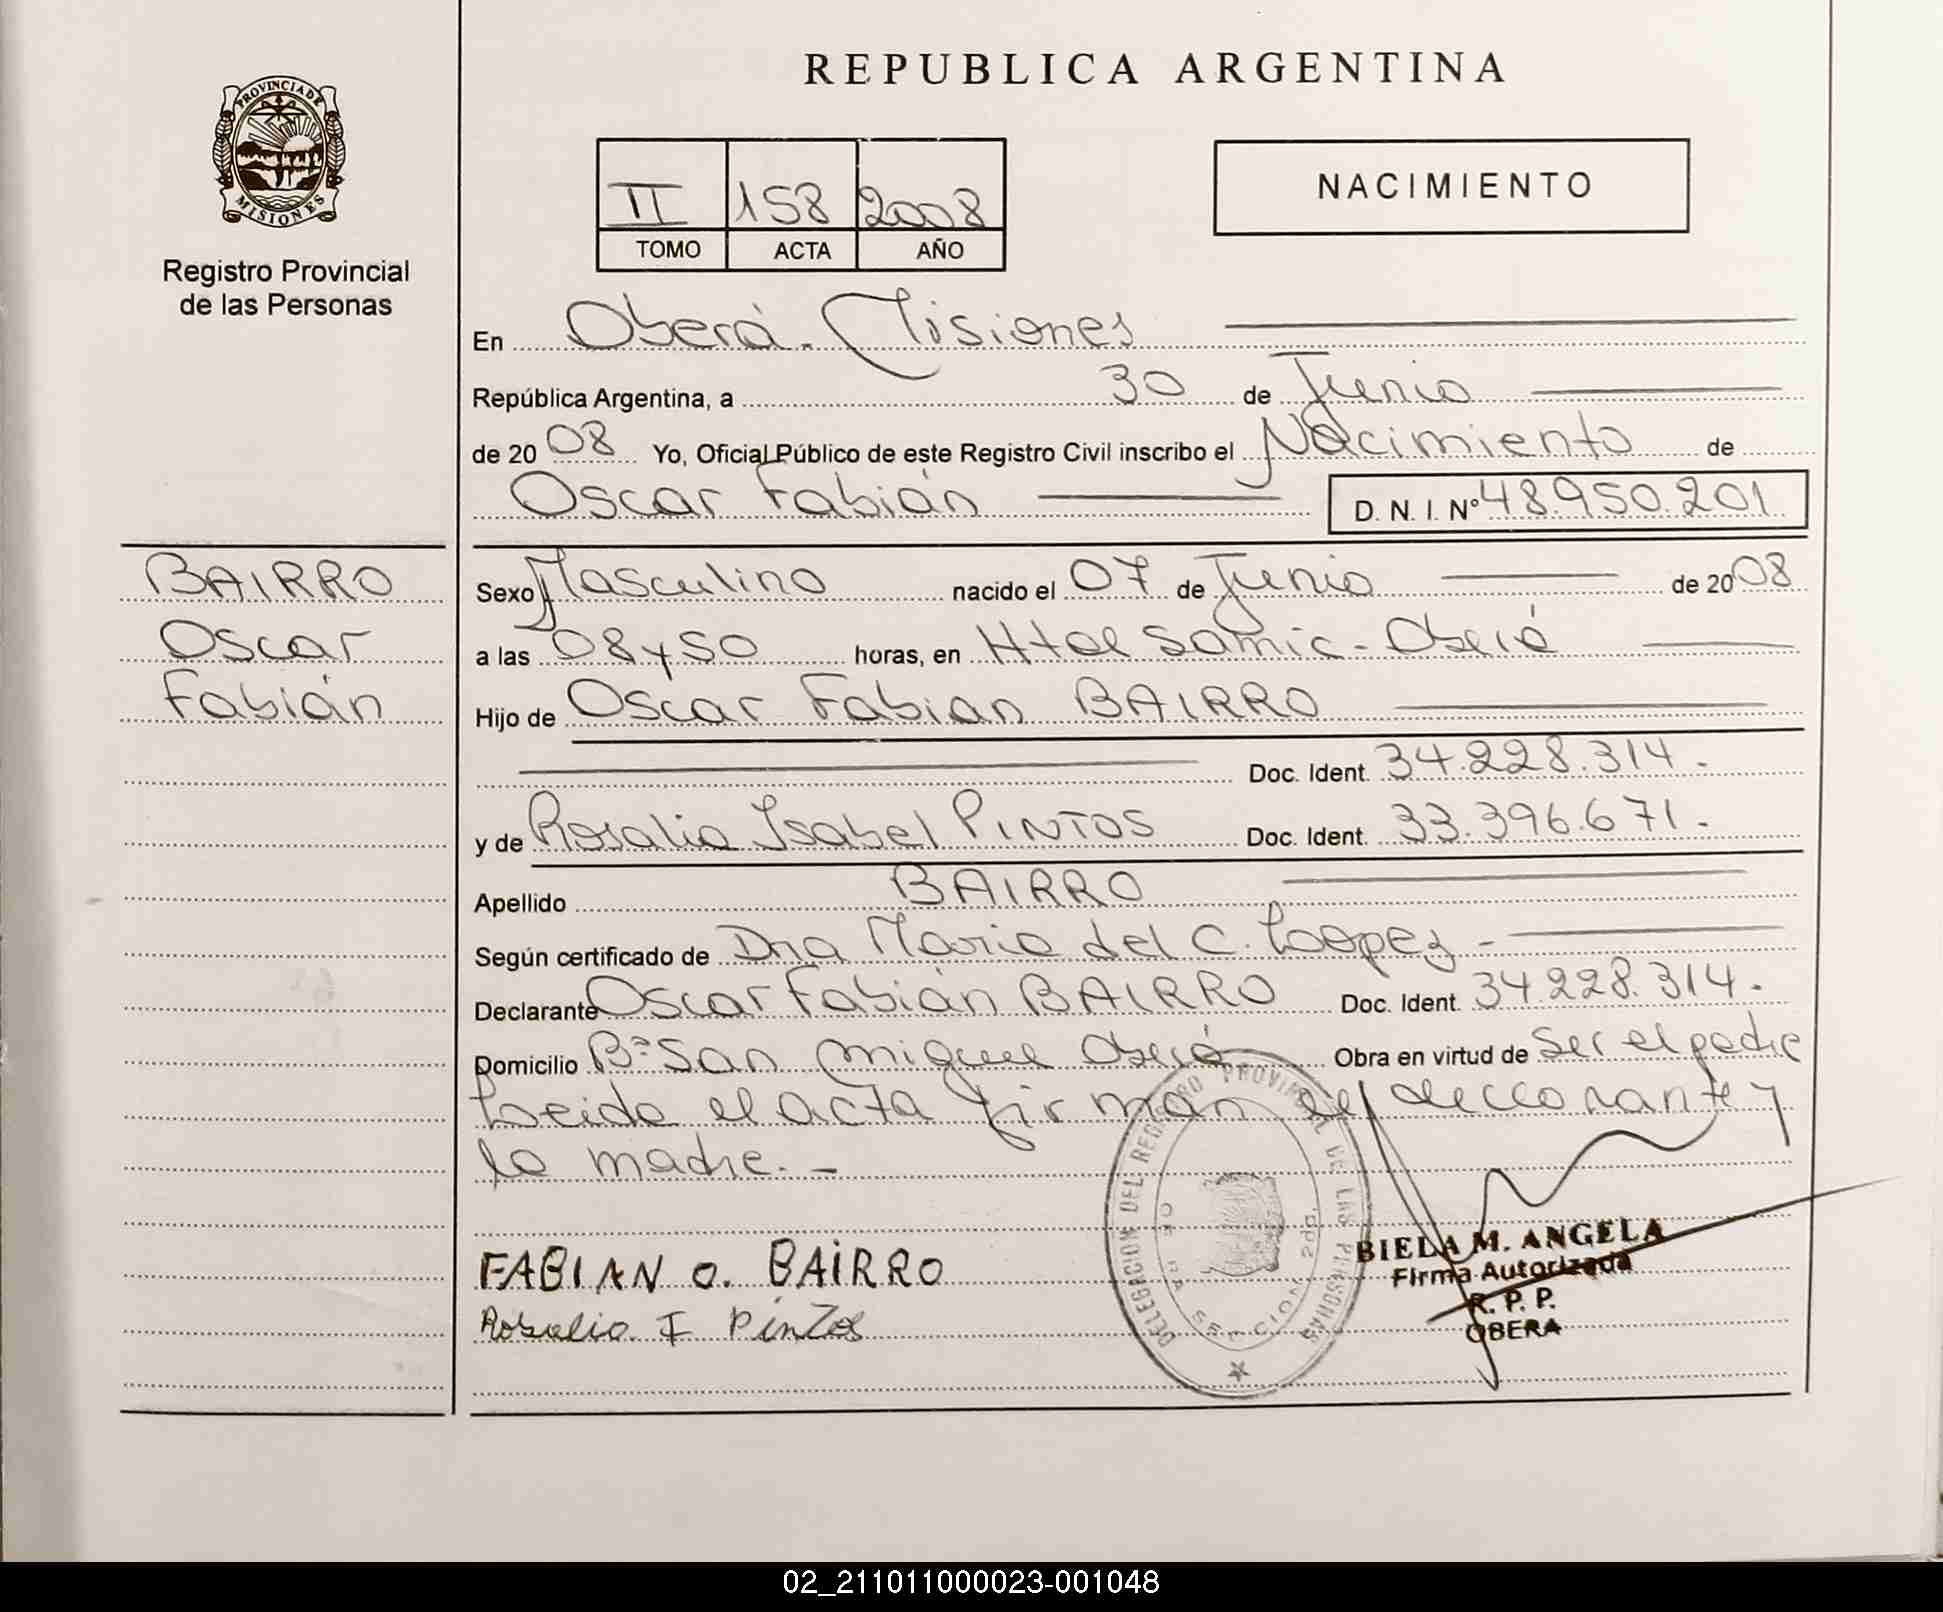 REPUBLICA ARGENTINA
PROVINCIA DE
MISIONES
Registro Provincial
de las Personas
II 158 2008
TOMO ACTA AÑO
NACIMIENTO
En Oberá. Misiones
República Argentina, a 30 de Junio
de 2008 Yo, Oficial Público de este Registro Civil inscribo el Nacimiento de
Oscar Fabián D. N. I. Nº 48.950.201
BAIRRO
Oscar
Fabián
Sexo Masculino nacido el 07 de Junio de 2008
a las 08 y 50 horas, en Htal Samic - Oberá
Hijo de Oscar Fabian BAIRRO
Doc. Ident. 34.228.314.
y de Rosalia Isabel PINTOS Doc. Ident. 33.396.671.
Apellido BAIRRO
Según certificado de Dra Maria del C. Loopez -
Declarante Oscar Fabián BAIRRO Doc. Ident. 34.228.314.
Domicilio Bº San Miguel Oberá Obra en virtud de Ser el padre
Leida el acta firman el declarante y
la madre. -
FABIAN O. BAIRRO
Rosalia I Pintos
DELEGACION DEL REGISTRO PROVINCIAL DE LAS PERSONAS
SECCION
BIELA M. ANGELA
Firma Autorizada
R. P. P.
OBERA
02_211011000023-001048